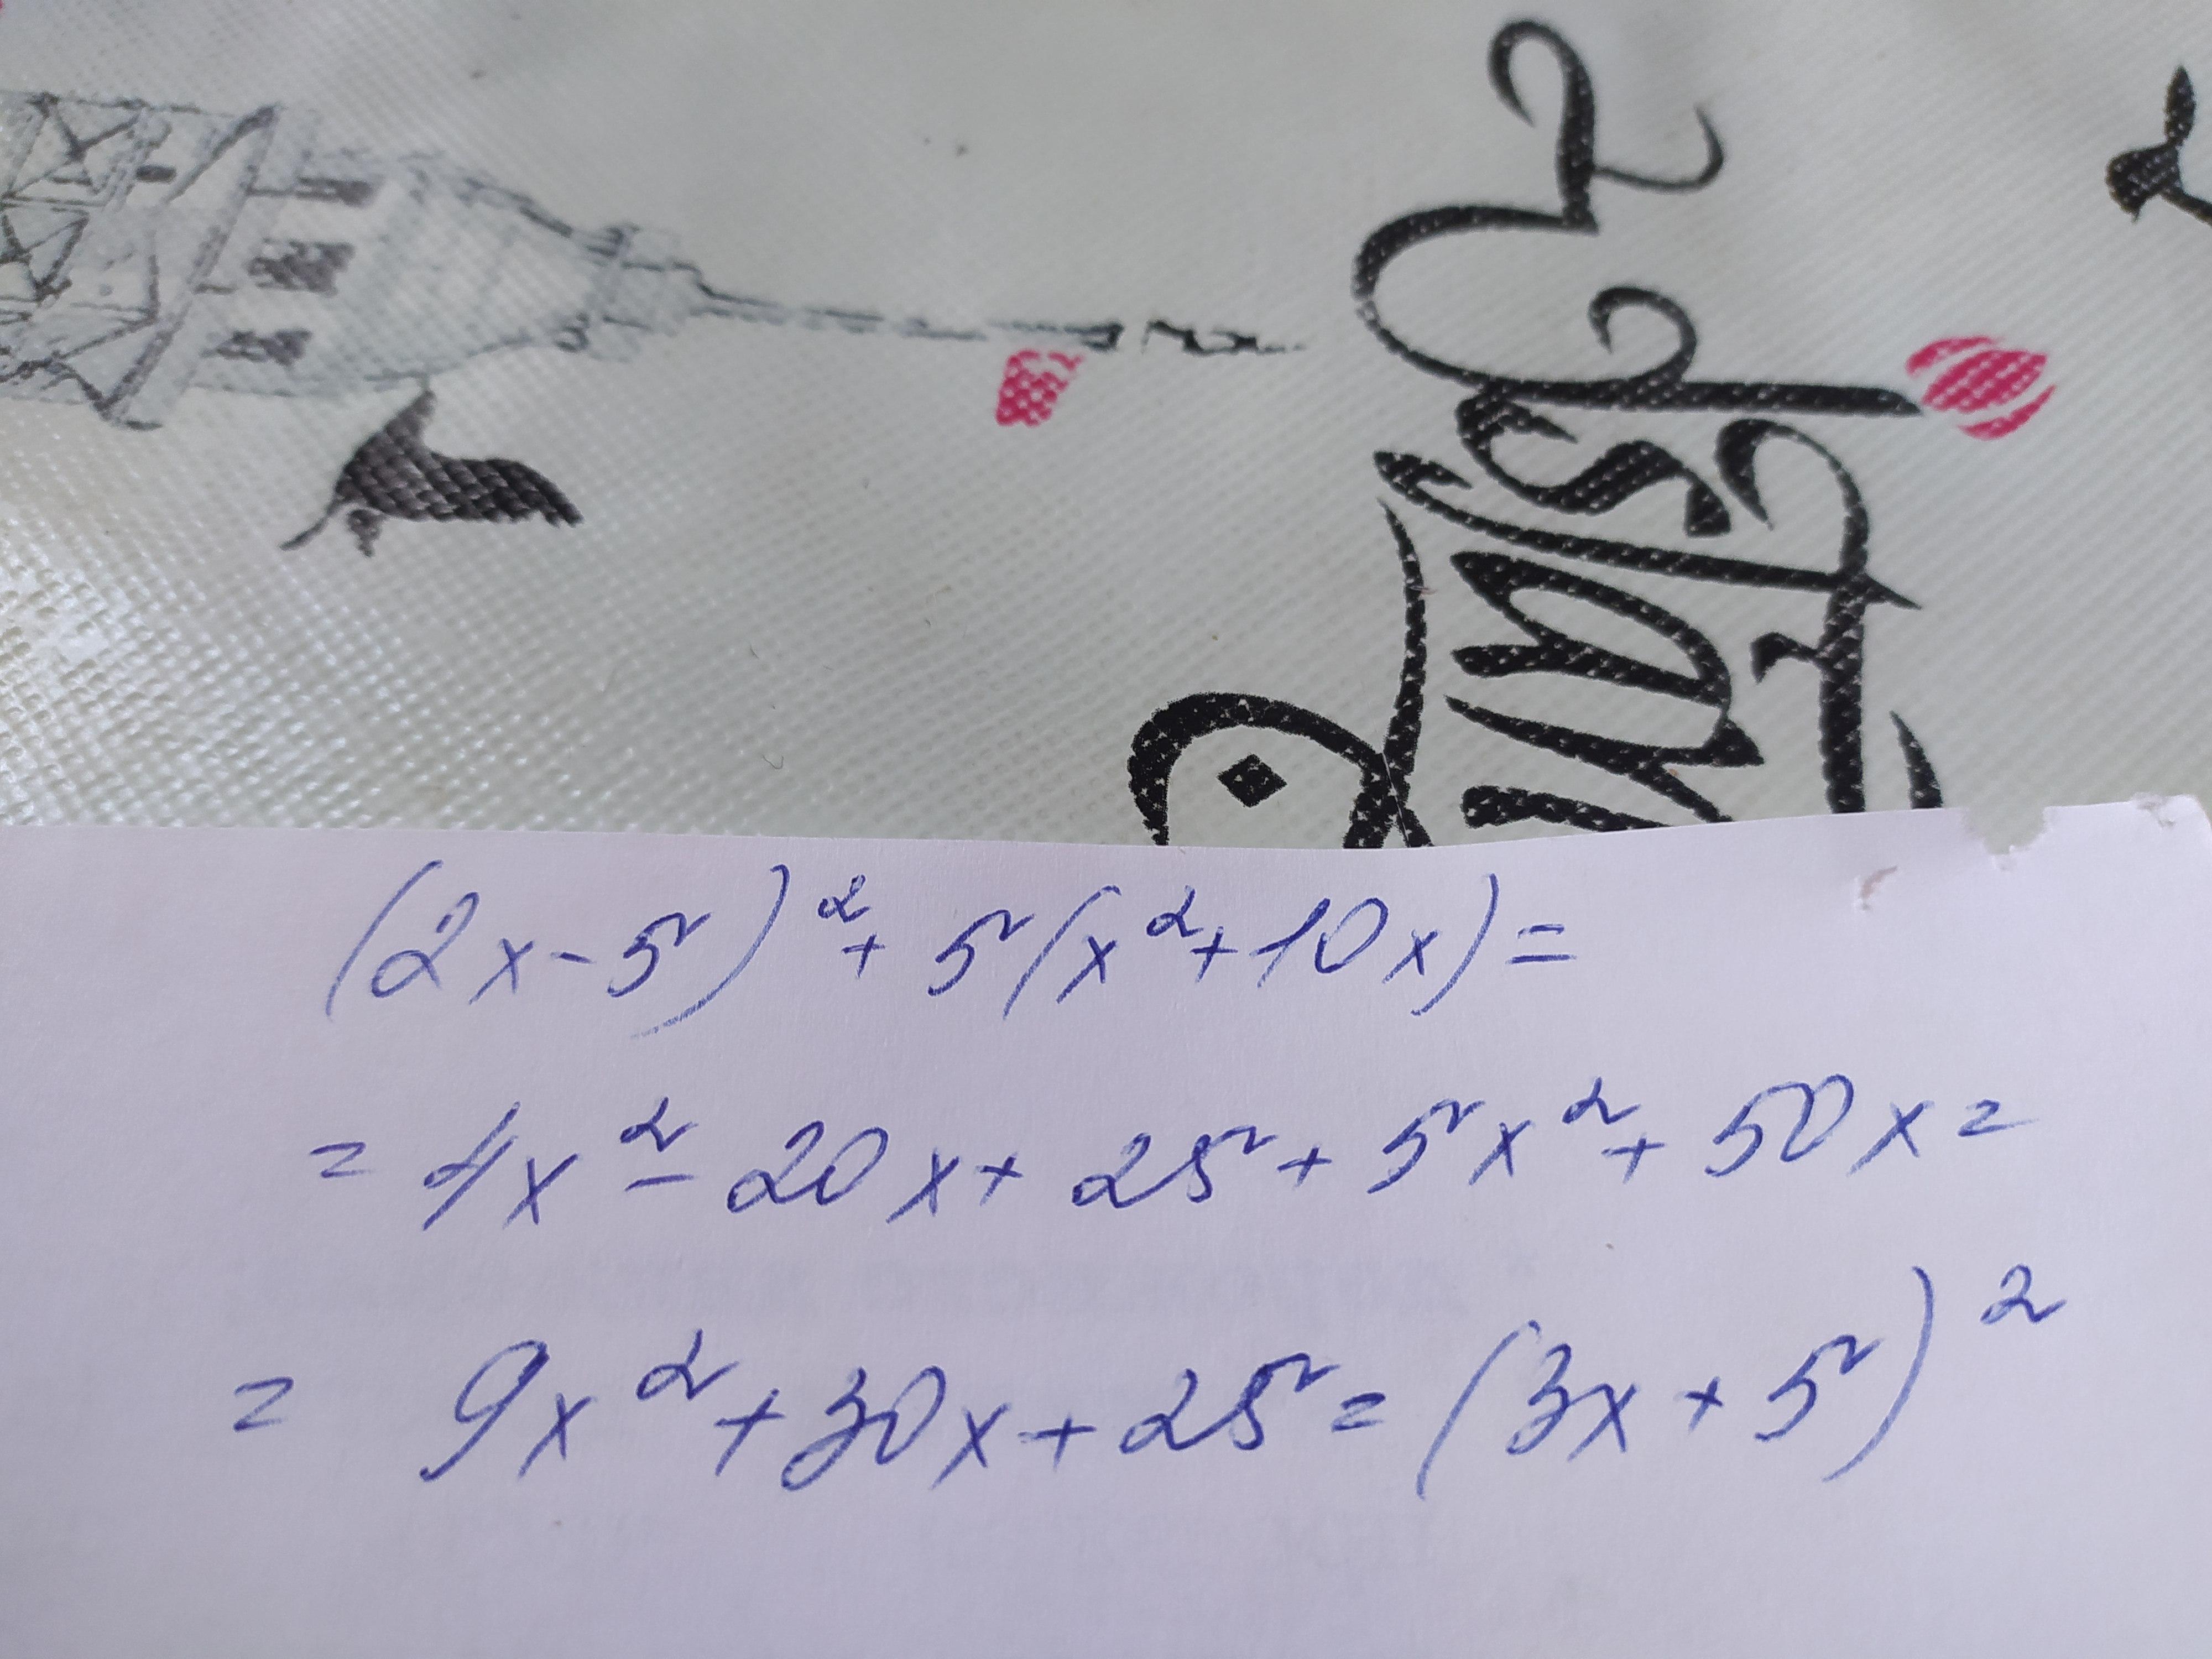 (2x-5)²+5(x²+10x)=
=4x²-20x+25+5x²+50x=
=9x²+30x+25=(3x+5)²